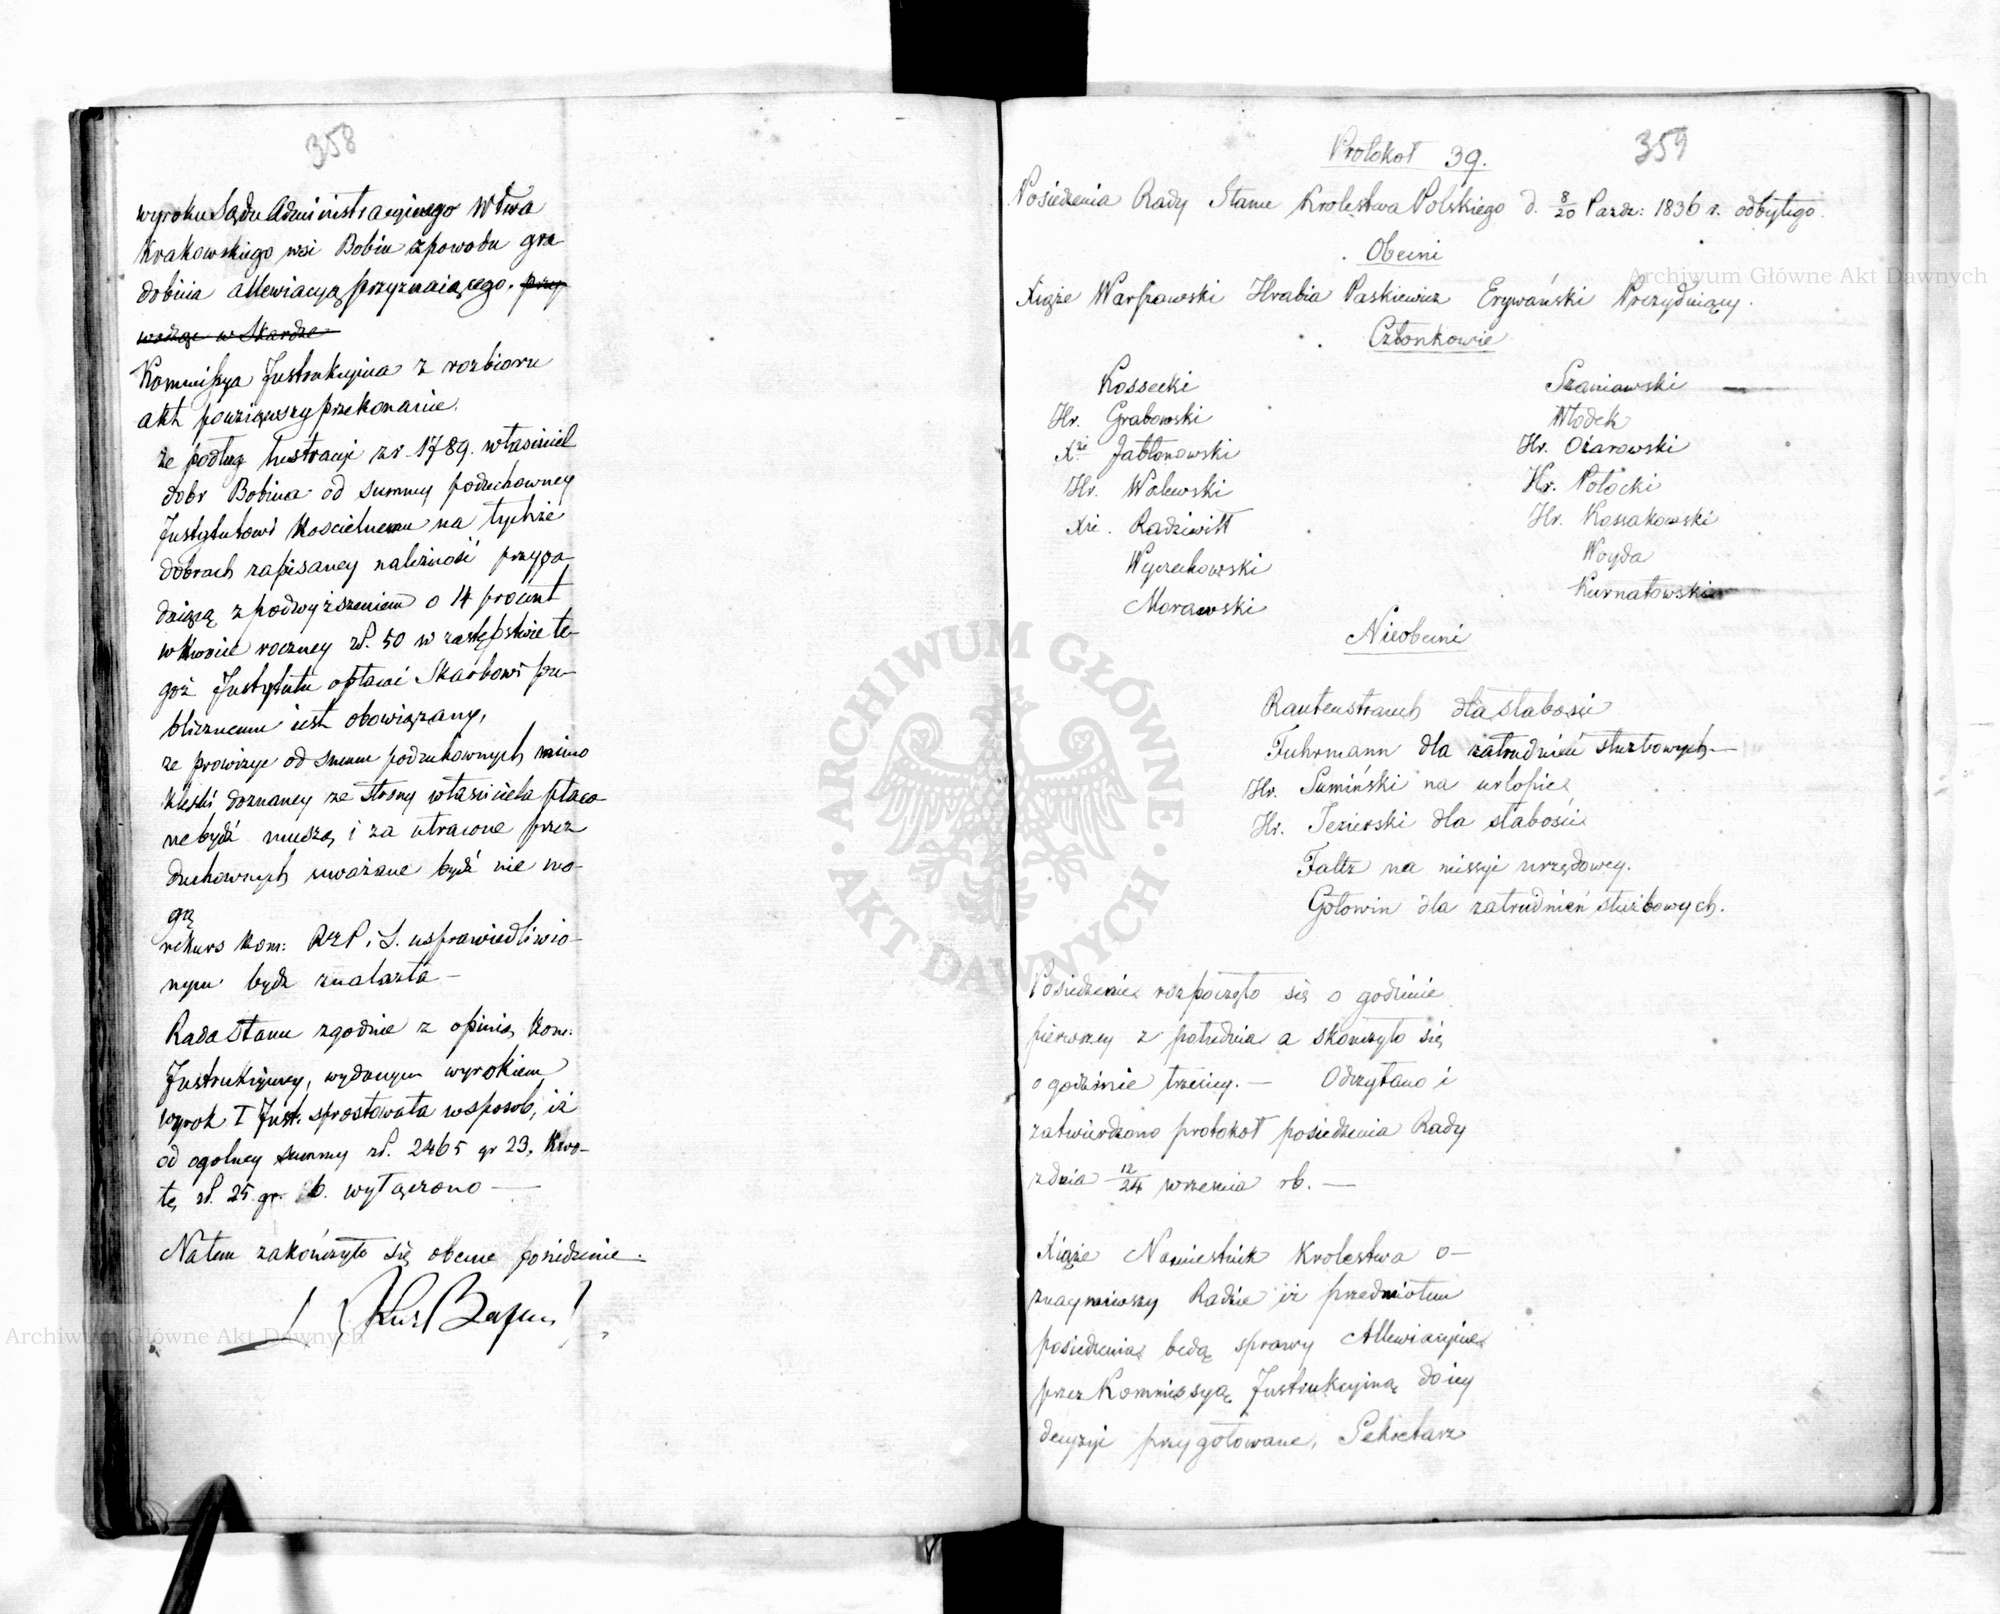 358
wyroku Sądu Administracyjnego Wtwa
Krakowskiego wsi Bobin z powodu gra
dobicia allewiacyą przyznaiącego. przy
wodząc w Skardze
Kommissya Instrukcyjna z rozbioru
akt powziąwszy przekonanie.
że podług lustracyi z r. 1789. właściciel
dobr Bobina od summy poduchowney
Instytutowi Kościelnemu na tychże
dobrach zapisaney należność przypa-
daiącą z podwyższeniem o 14 procent
w kwocie roczney zł. 50 w zastępstwie te-
goż Instytutu opłacać Skarbowi pu-
blicznemu iest obowiązany,
że prowizye od summ poduchownych mimo
klęski doznaney ze strony właściciela płaco-
ne bydź muszą, i za utracone przez
duchownych uważane bydź nie mo-
gą
rekurs Kom: RzP. i S. usprawiedliwio-
nym bydź znalazła —
Rada Stanu zgodnie z opinią Kom:
Instrukcyjney, wydanym wyrokiem
wyrok I Inst. sprostowała w sposób, iż
od ogolney summy zł. 2465 gr 23. kwo-
tę zł. 25. gr. 6. wyłączono —
Na tem zakończyło się obecne posiedzenie.
359
Protokoł 39.
Posiedzenia Rady Stanu Krolestwa Polskiego d. 8/20 Pazdz: 1836 r. odbytego.
Obecni
Xiąże Warszawski Hrabia Paskiewicz Erywański Prezyduiący.
Członkowie
Kossecki
Szaniawski
Hr. Grabowski
Włodek
Xże Jabłonowski
Hr. Ożarowski
Hr. Walewski
Hr. Potocki
Xże. Radziwiłł
Hr. Kossakowski
Wyczechowski
Woyda
Morawski
Kurnatowski
Nieobecni
Rautenstrauch dla słabości
Fuhrmann dla zatrudnień służbowych —
Hr. Sumiński na urlopie
Hr. Jezierski dla słabości
Faltz na missyi urzędowey.
Gołowin dla zatrudnień służbowych.
Posiedzenie rozpoczęło się o godzinie
pierwszey z południa a skończyło się
o godzinie trzeciey. — Odczytano i
zatwierdzono protokoł posiedzenia Rady
z dnia 12/24 września rb. —
Xiąże Namiestnik Krolestwa o-
znaymiwszy Radzie iż przedmiotem
posiedzenia będą sprawy Allewiacyjne
przez Kommissyą Instrukcyiną do iey
decyzyi przygotowane, Sekretarz
Archiwum Główne Akt Dawnych
Archiwum Główne Akt Dawnych
ARCHIWUM GŁÓWNE · AKT DAWNYCH ·